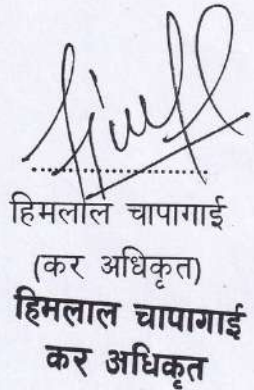 हिमलाल चापागाई
(कर अधिकृत)
हिमलाल चापागाई
कर अधिकृत